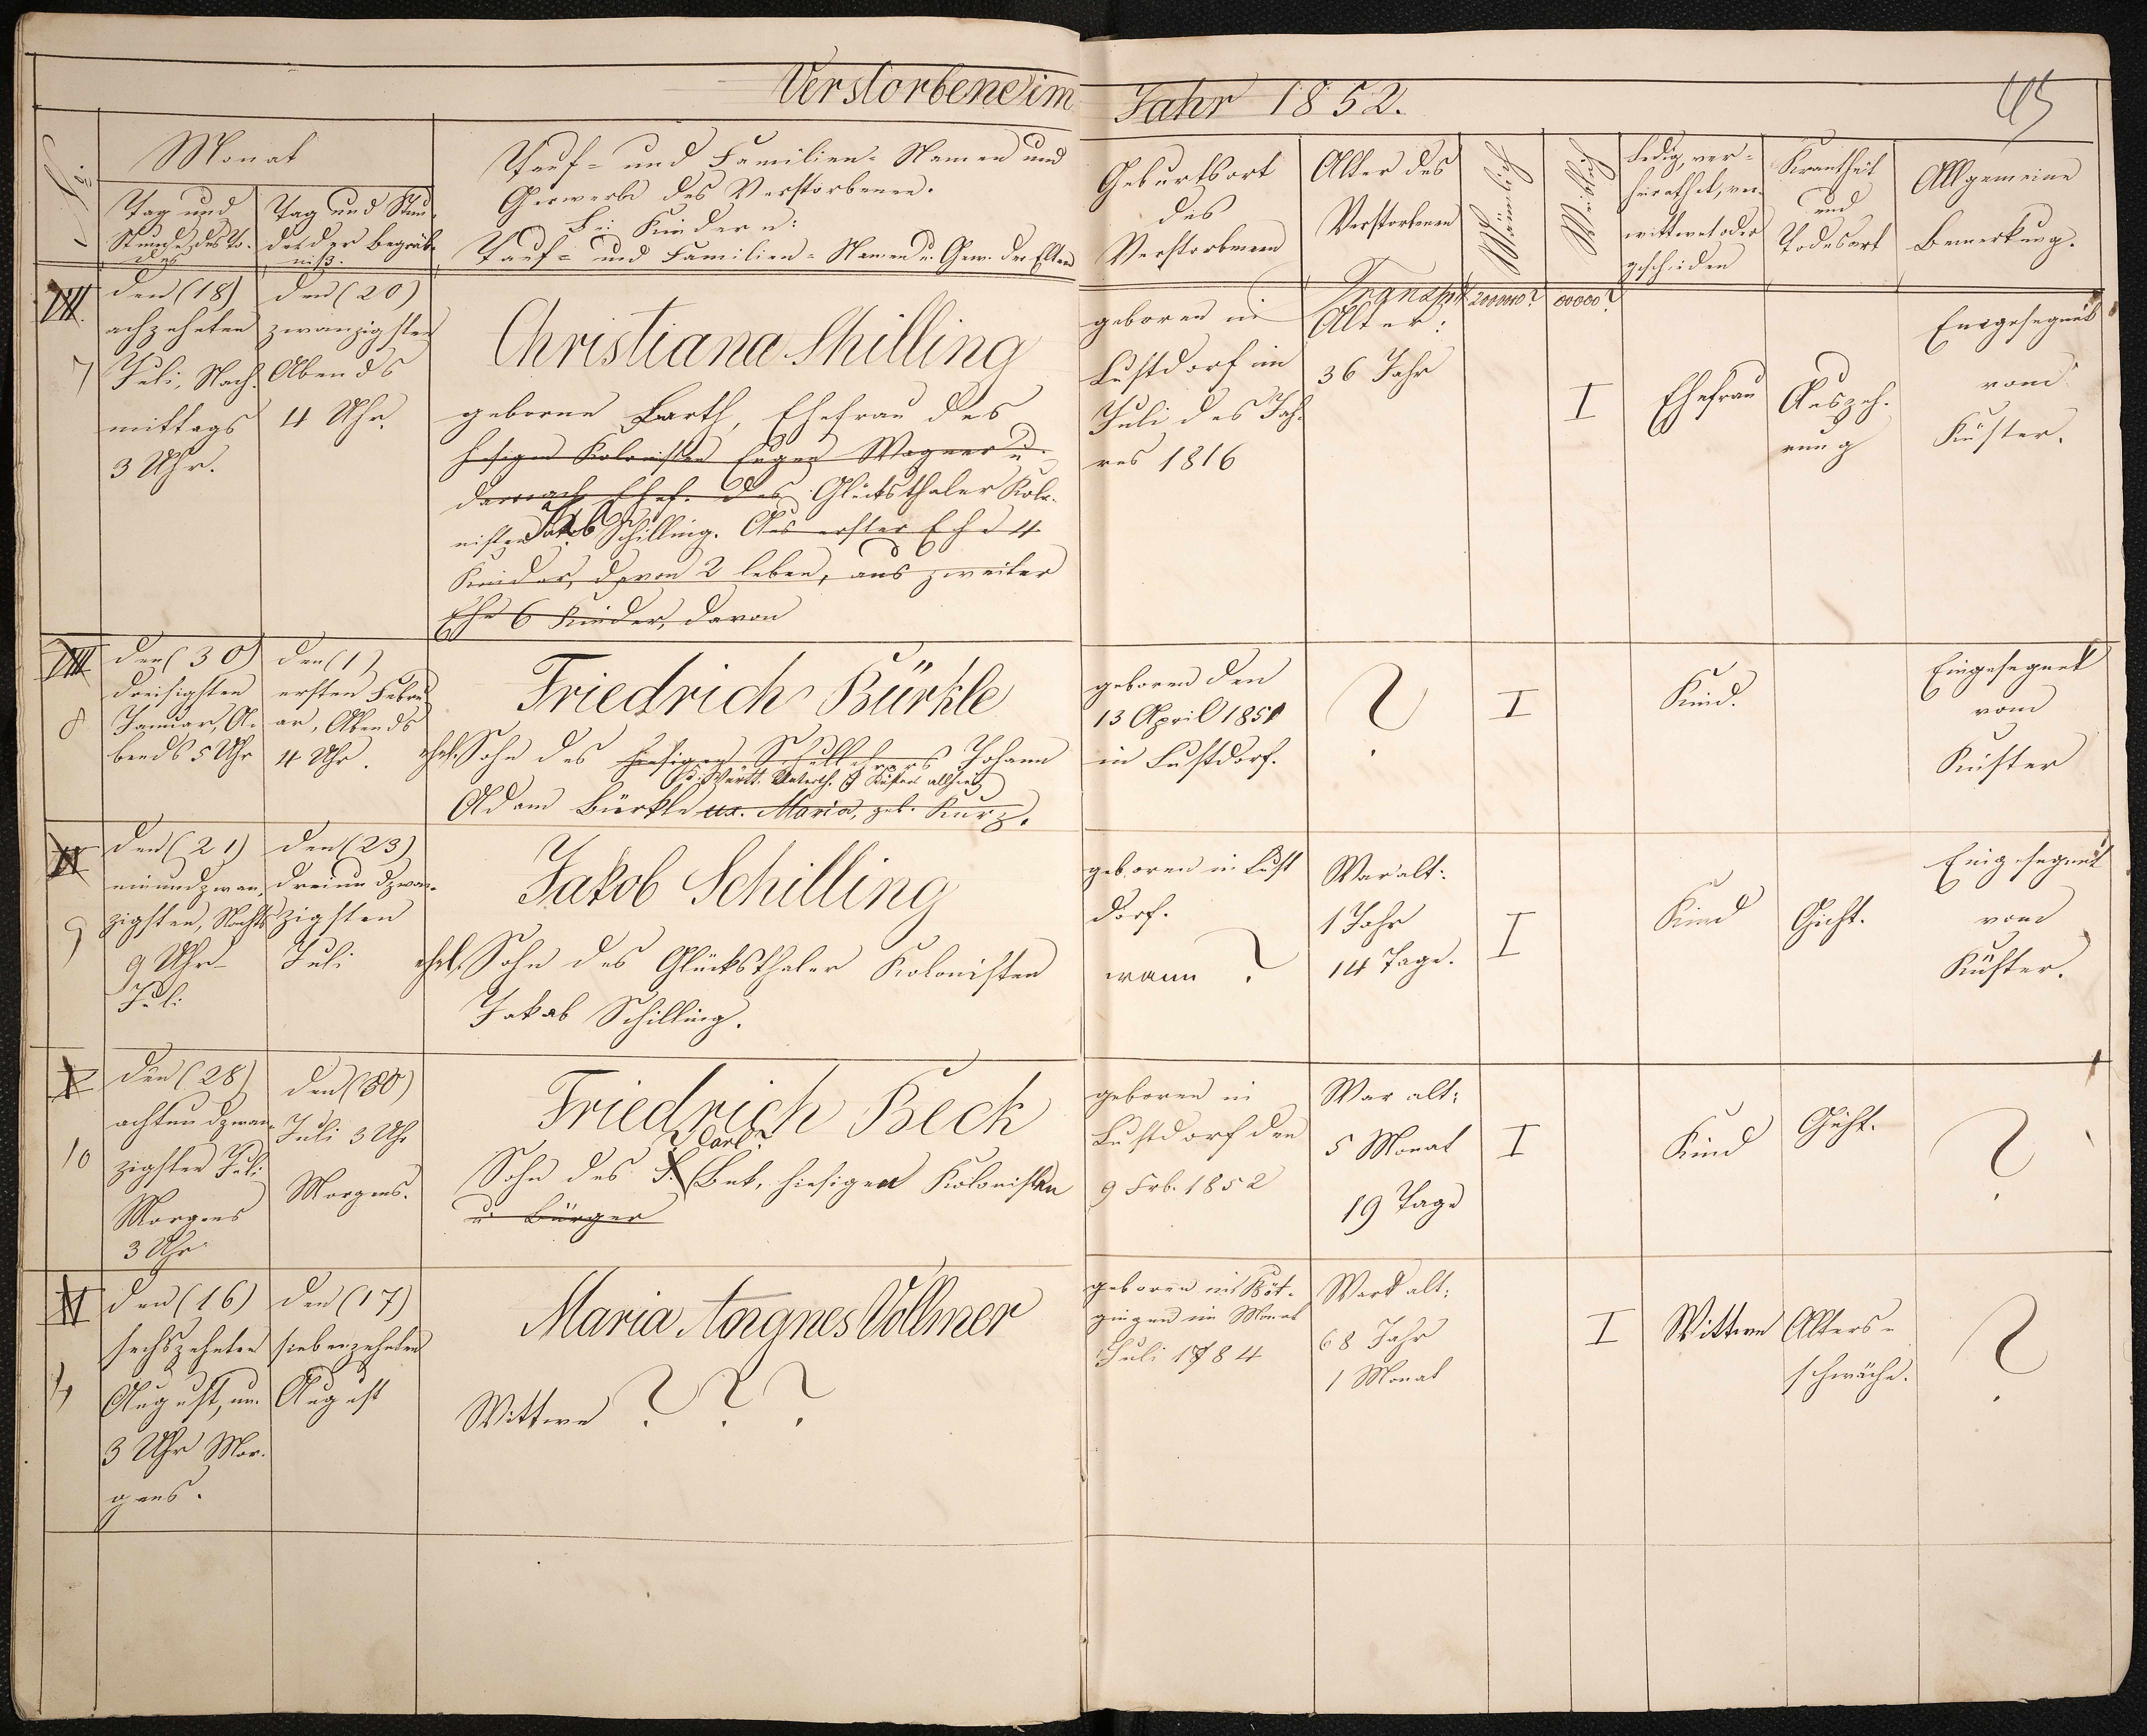 Verstorbene im Jahr 1852.
45
Monat
Tag und Stunde des Todes
Tag und Stunde der Begräbniß.
Tauf- und Familien-Namen und
Gewerbe des Verstorbenen.
Bei Kindern:
Tauf- und Familien-Namen u. Gew. der Eltern
Geburtsort
des
Verstorbenen
Alter des
Verstorbenen
Männlich
Weiblich
Ledig, ver-
heirathet, ver-
wittwet oder
geschieden
Krankheit
und
Todesart
Allgemeine
Bemerkung.
VII.
7
den (18)
achzehnten
Juli, Nach-
mittags
3 Uhr.
den (20)
zwanzigsten
Abends
4 Uhr.
Christiana Shilling
geborne Barth, Ehefrau des
hiesigen Kolonisten Wagner u.
darnach Ehef. des Glücksthaler Kolo-
nisten Jakob Schilling. Aus erster Ehe 4
Kinder, davon 2 leben, aus zweiter
Ehe 6 Kinder, davon
geboren in
Lustdorf im
Juli des Jah-
res 1816
Transpt
Alter:
36 Jahr
I
Ehefrau
Auszeh-
rung
Eingesegnet
vom
Küster.
VIII
8
den (30)
dreisigsten
Januar, A-
bends 5 Uhr
den (1)
ersten Febru-
ar, Abends
4 Uhr.
Friedrich Bürkle
ehel. Sohn des hiesigen Schullehrers Johann
Württ. Unterth. Küsters allhier
Adam Bürkle ux. Maria, geb. Kurz.
geboren den
13 April 1851
in Lustdorf.
?
I
Kind.
Eingesegnet
vom
Küster
IX
9
den (21)
einundzwan-
zigsten, Nachts
9 Uhr
Juli
den (23)
dreiundzwan-
zigsten
Juli
Jakob Schilling
ehel. Sohn des Glücksthaler Kolonisten
Jakob Schilling.
geboren in Lust
dorf.
wann ?
War alt:
1 Jahr
14 Tage.
I
Kind
Gicht.
Eingesegnet
vom
Küster.
X
10
den (28)
achtundzwan-
zigsten Juli
Morgens
3 Uhr
den (30)
Juli 3 Uhr
Morgens.
Friedrich Beck
Sohn des Bek, hiesigen Kolonisten
u. Bürger
geboren in
Lustdorf den
9 Feb. 1852
War alt:
5 Monat
19 Tage
I
Kind
Gicht.
?
XI
den (16)
sechszehnten
August, um
3 Uhr Mor-
gens.
den (17)
siebenzehnten
August
Maria Angnes Vollmer
Wittwe ? ? ?
geboren in
gingen im Monat
Juli 1784
Ward alt:
68 Jahr
1 Monat
I
Wittwe
Alters-
schwäche.
?